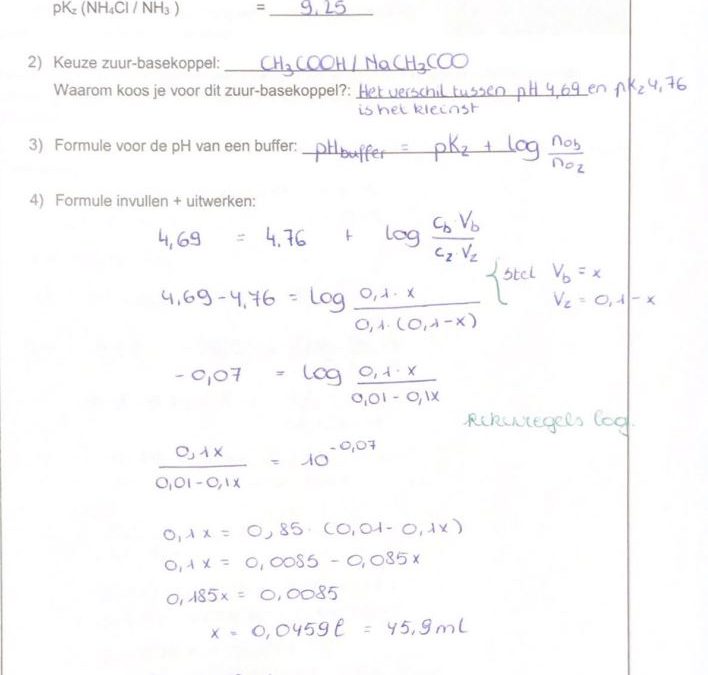 pKz (NH4Cl / NH3 ) = 9,25
2) Keuze zuur-basekoppel: CH3COOH / NaCH3COO
Waarom koos je voor dit zuur-basekoppel?: Het verschil tussen pH 4,69 en pKz 4,76
is het kleinst
3) Formule voor de pH van een buffer: pHbuffer = pKz + log nob/noz
4) Formule invullen + uitwerken:
4,69 = 4,76 + log cb·Vb/cz·Vz
{ stel Vb = x
Vz = 0,1-x
4,69-4,76 = log 0,1·x/0,1·(0,1-x)
-0,07 = log 0,1·x/0,01-0,1x
Rekenregels log.
0,1x/0,01-0,1x = 10^-0,07
0,1x = 0,85·(0,01-0,1x)
0,1x = 0,0085 - 0,085x
0,185x = 0,0085
x = 0,0459l = 45,9ml